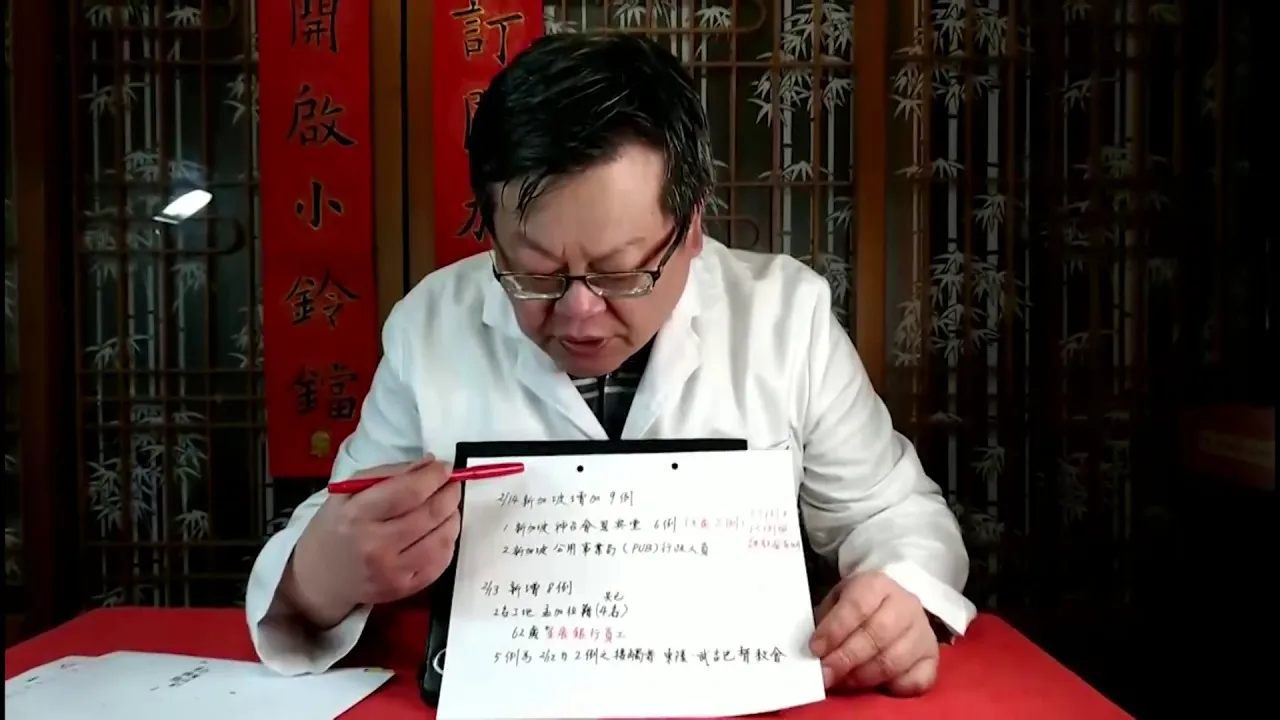 開啟小鈴鐺
訂
2/14 新加坡增加 9例
1. 新加坡神召會恩典堂 6例
2. 新加坡公用事業局 (PUB) 行政人員
2/13 新增 8例
2名工地 孟加拉籍 (4名)
62歲 星展銀行員工
5例為 2/12日 2例之接觸者 東陵·武吉巴督教會